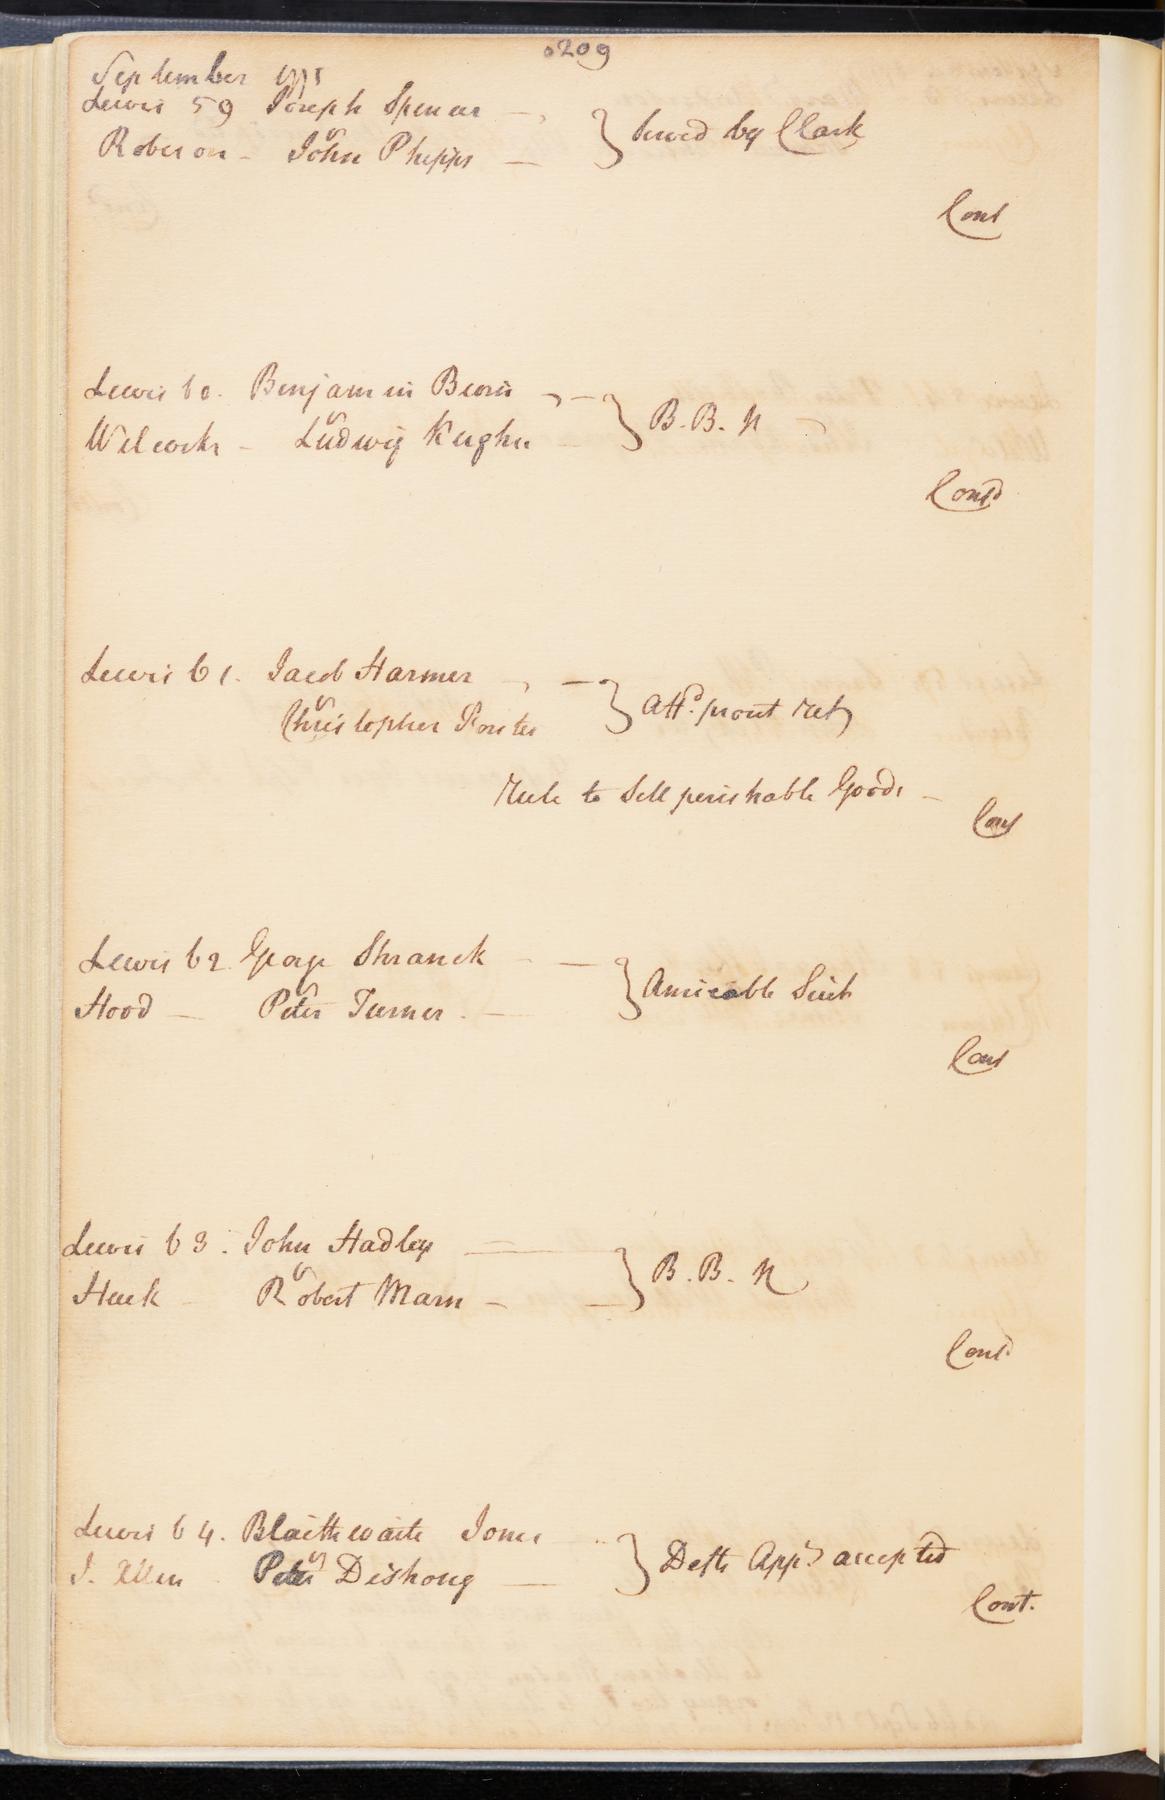 209
September 1775
Lewis 59 Joseph Spencer
vs
Roberson - John Phipps -
} served by Clark
Cont
Lewis 60. Benjamin
vs
Wilcocks - Ludwig Kughn
} B. B. N
Contd
Lewis 61. Jacob Harmer
vs
Christopher
} Attd. prout ret
Rule to Sell perishable Goods -
Cont
Lewis 62. George Shranck
vs
Hood - Peter Turner. -
} Amicable Suit
Cont
Lewis 63. John Hadley
vs
Robert Marn -
} B. B. N
Contd
Lewis 64. Blaithwaite Jones
vs
J. Allen Peter Dishong -
} Defts Appe accepted
Cont.